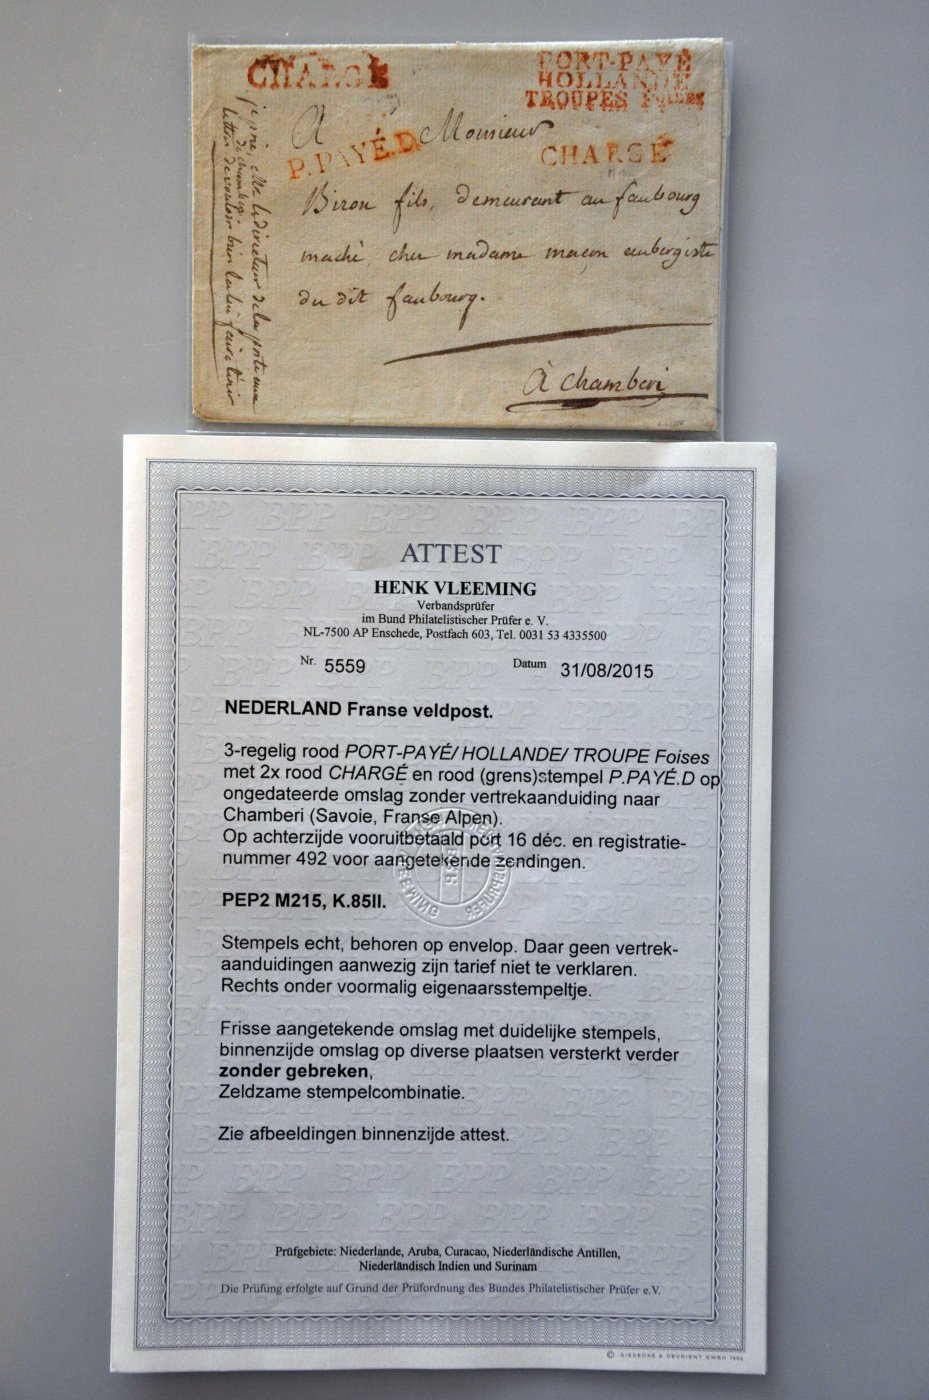 CHARGÉ
PORT-PAYÉ
HOLLANDE
TROUPES Foises
A Monsieur
P.PAYÉ.D.
CHARGÉ
Biron fils, demeurant au faubourg
maché, chez madame maçon aubergiste
du dit faubourg.
à chamberi
je prie, Mr le directeur de la poste aux
lettres de vouloir bien la lui faire tenir
de chamberi
ATTEST
HENK VLEEMING
Verbandsprüfer
im Bund Philatelistischer Prüfer e. V.
NL-7500 AP Enschede, Postfach 603, Tel. 0031 53 4335500
Nr. 5559 Datum 31/08/2015
NEDERLAND Franse veldpost.
3-regelig rood PORT-PAYÉ/ HOLLANDE/ TROUPE Foises
met 2x rood CHARGÉ en rood (grens)stempel P.PAYÉ.D op
ongedateerde omslag zonder vertrekaanduiding naar
Chamberi (Savoie, Franse Alpen).
Op achterzijde vooruitbetaald port 16 déc. en registratie-
nummer 492 voor aangetekende zendingen.
PEP2 M215, K.85II.
Stempels echt, behoren op envelop. Daar geen vertrek-
aanduidingen aanwezig zijn tarief niet te verklaren.
Rechts onder voormalig eigenaarsstempeltje.
Frisse aangetekende omslag met duidelijke stempels,
binnenzijde omslag op diverse plaatsen versterkt verder
zonder gebreken,
Zeldzame stempelcombinatie.
Zie afbeeldingen binnenzijde attest.
Prüfgebiete: Niederlande, Aruba, Curacao, Niederländische Antillen,
Niederländisch Indien und Surinam
Die Prüfung erfolgte auf Grund der Prüfordnung des Bundes Philatelistischer Prüfer e.V.
© GIESECKE & DEVRIENT GMBH 1992